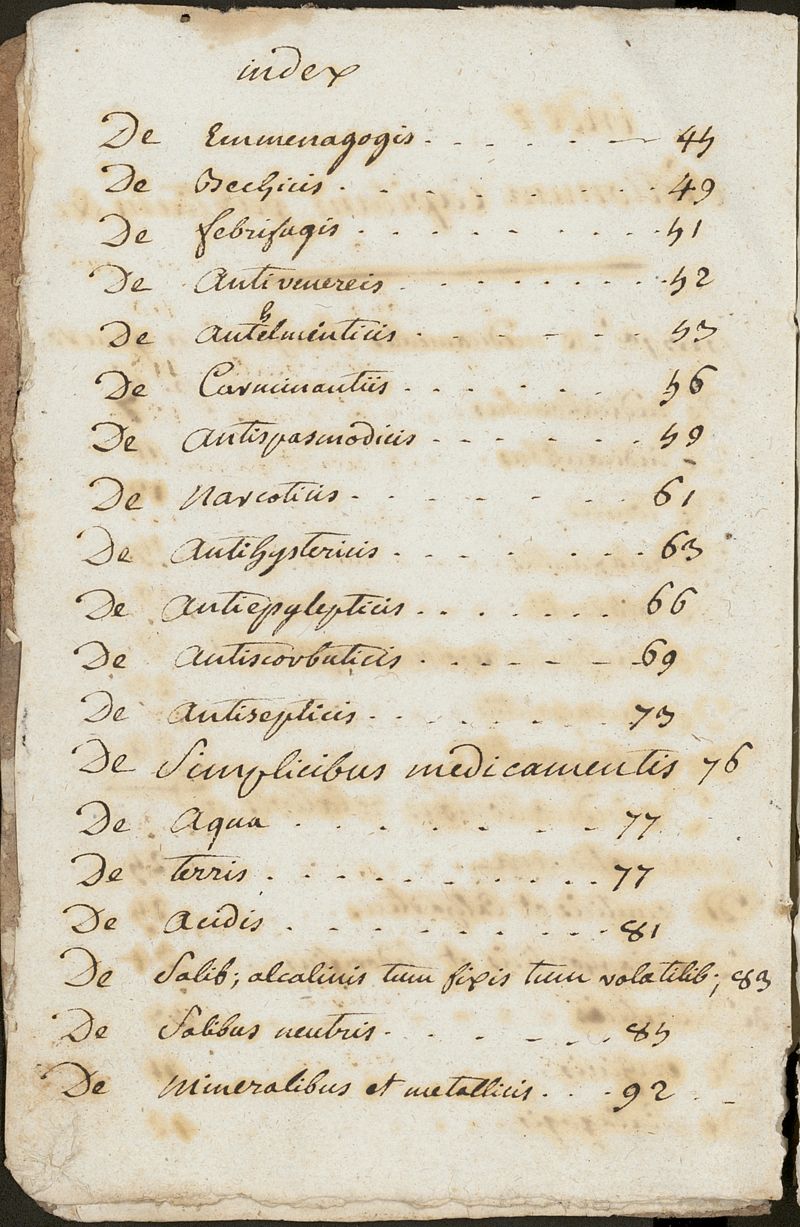 index
De Emmenagogis 45
De Becchicis 49
De febrifugis 51
De Antivenereis 52
De Anthelminticis 53
De Carminantiis 56
De Antispasmodicis 59
De Narcoticis 61
De Antihystericis 63
De Antiepylepticis 66
De Antiscorbuticis 69
De Antisepticis 73
De Simplicibus medicamentis 76
De Aqua 77
De terris 77
De Acidis 81
De Salib; alcalinis tum fixis tum volatilib; 83
De Salibus neutris 85
De Mineralibus et metallicis 92